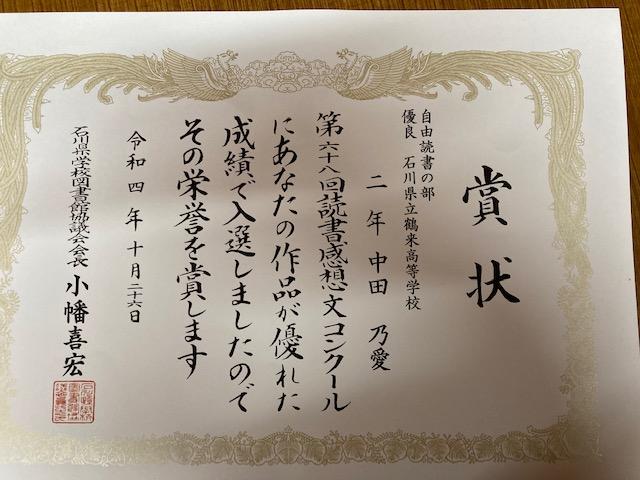 賞状
自由読書の部
優良 石川県立鶴来高等学校
二年 中田 乃愛
第六十八回読書感想文コンクール
にあなたの作品が優れた
成績で入選しましたので
その栄誉を賞します
令和四年十月二十六日
石川県学校図書館協議会会長 小幡喜宏